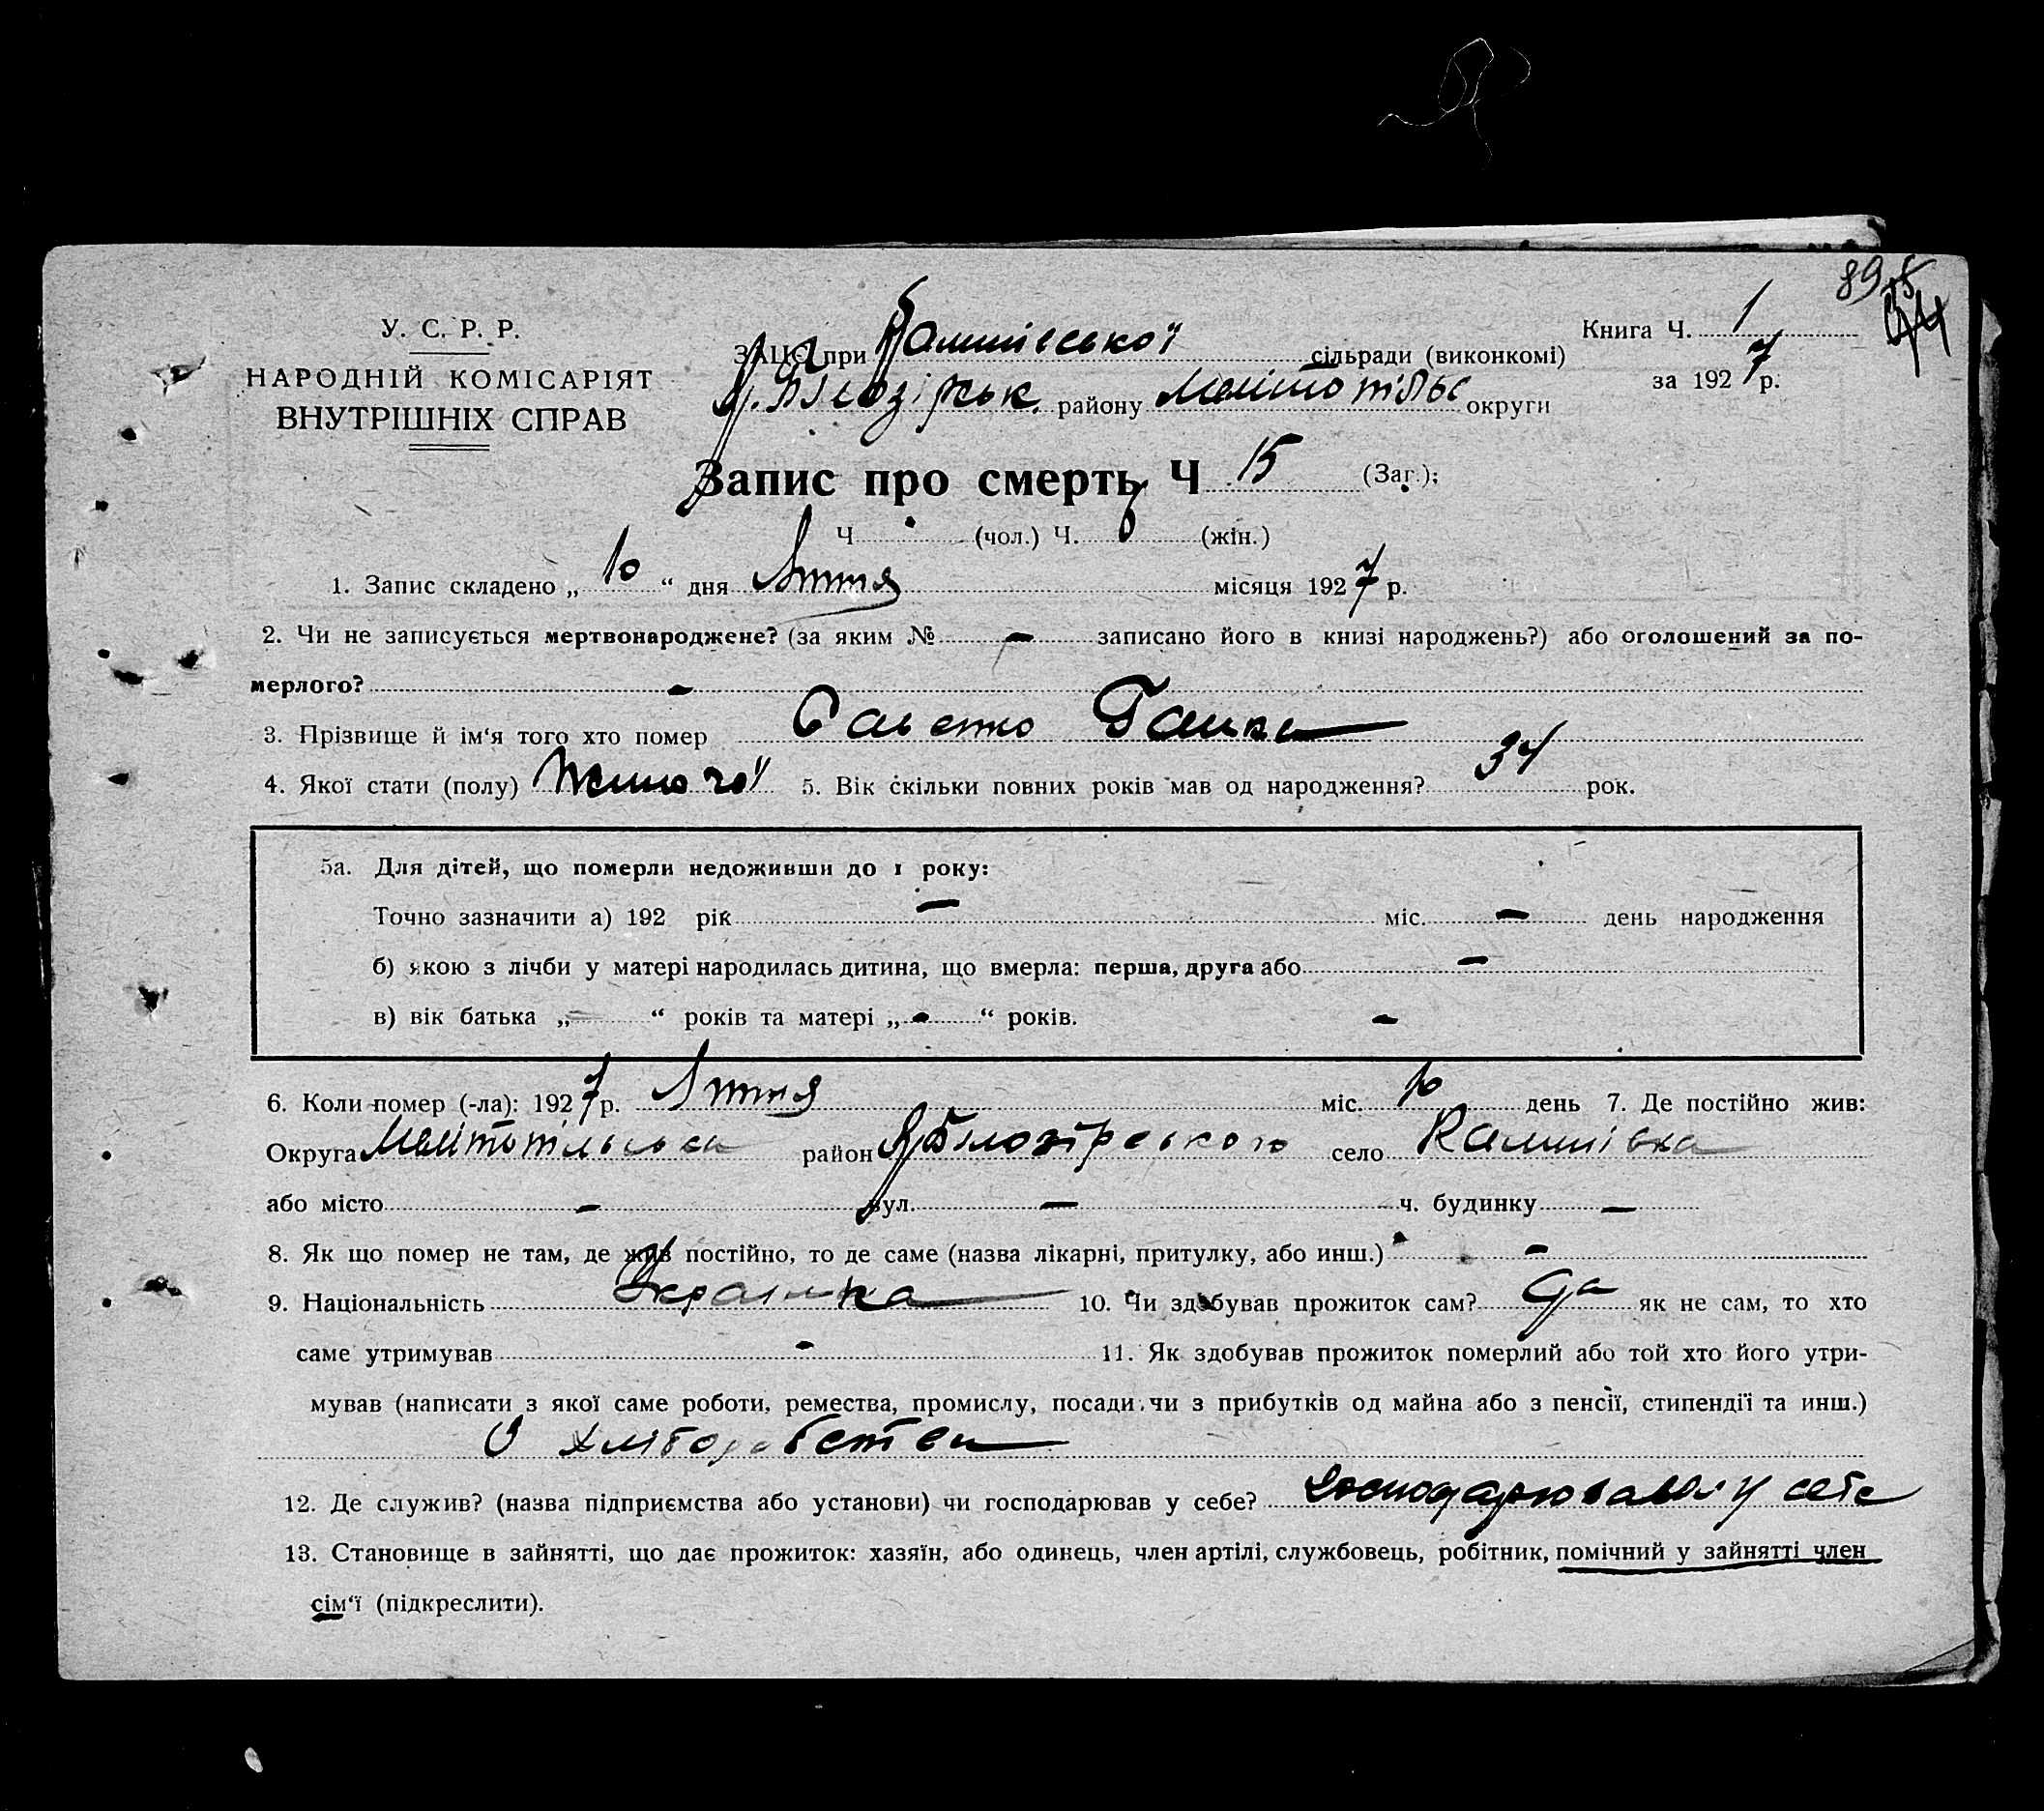 89
У. С. Р. Р.
НАРОДНІЙ КОМІСАРІЯТ
ВНУТРІШНІХ СПРАВ
ЗАЦС при сільради (виконкомі)
Книга Ч. 1
району округи
за 1927 р.
Запис про смерть Ч 15 (Заг.);
Ч. (чол.) Ч. (жін.)
1. Запис складено „ 10 “ дня Лютня місяця 1927 р.
2. Чи не записується мертвонароджене? (за яким № - записано його в книзі народжень?) або оголошений за по-
мерлого? -
3. Прізвище й ім‘я того хто помер
4. Якої стати (полу) Жіночої 5. Вік скільки повних років мав од народження? 34 рок.
5а. Для дітей, що померли недоживши до 1 року:
Точно зазначити а) 192 рік - міс. - день народження
б) якою з лічби у матері народилась дитина, що вмерла: перша, друга або -
в) вік батька „ - “ років та матері „ - “ років. -
6. Коли помер (-ла): 1927 р. Лютня міс. 10 день 7. Де постійно жив:
Округа район село
або місто - вул. - ч. будинку -
8. Як що помер не там, де жив постійно, то де саме (назва лікарні, притулку, або инш.) -
9. Національність Українка 10. Чи здобував прожиток сам? Да як не сам, то хто
саме утримував - 11. Як здобував прожиток померлий або той хто його утри-
мував (написати з якої саме роботи, ремества, промислу, посади чи з прибутків од майна або з пенсії, стипендії та инш.)
12. Де служив? (назва підприємства або установи) чи господарював у себе? Господарювала у себе
13. Становище в зайнятті, що дає прожиток: хазяїн, або одинець, член артілі, службовець, робітник, помічний у зайнятті член
сім‘ї (підкреслити).